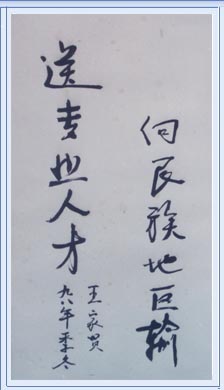 向民族地区输
送专业人才
王家贯
九八年季冬